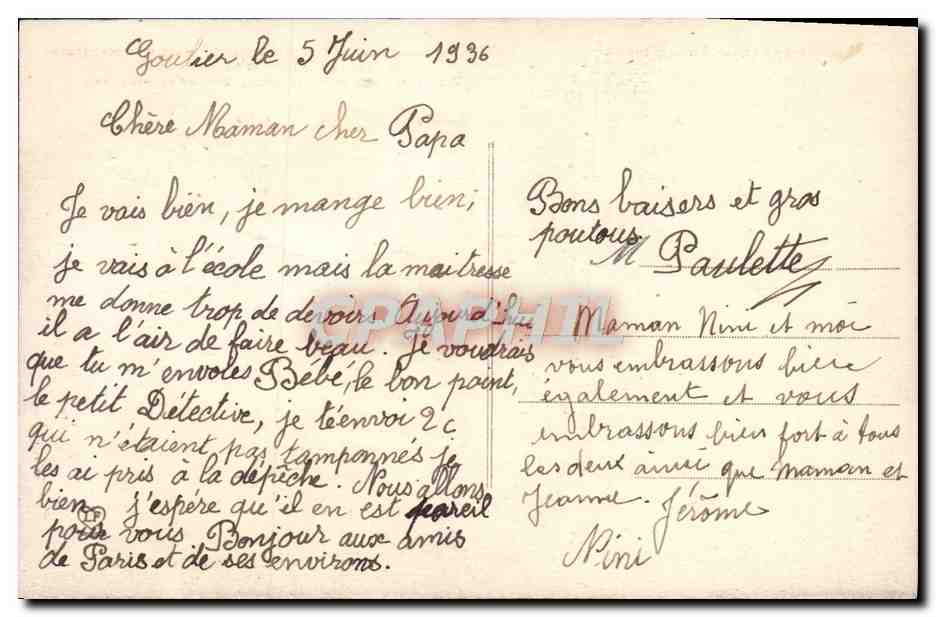 Goulier le 5 Juin 1936
Chère Maman cher Papa
Je vais bien, je mange bien,
je vais à l'école mais la maitresse
me donne trop de devoirs Aujourd'hui
il a l'air de faire beau. Je voudrais
que tu m'envoies Bébé, le bon point,
le petit Détective, je t'envoi 2c
qui n'étaient pas tamponnés je
les ai pris à la dépêche. Nous allons
bien j'espére qu'il en est pareil
pour vous Bonjour aux amis
de Paris et de ses environs.
Bons baisers et gros
poutous.
M Paulette
Maman Nini et moi
vous embrassons bien
également et vous
embrassons bien fort à tous
les deux ainsi que maman et
Jeanne. Jérôme
Nini
CPAPHIL